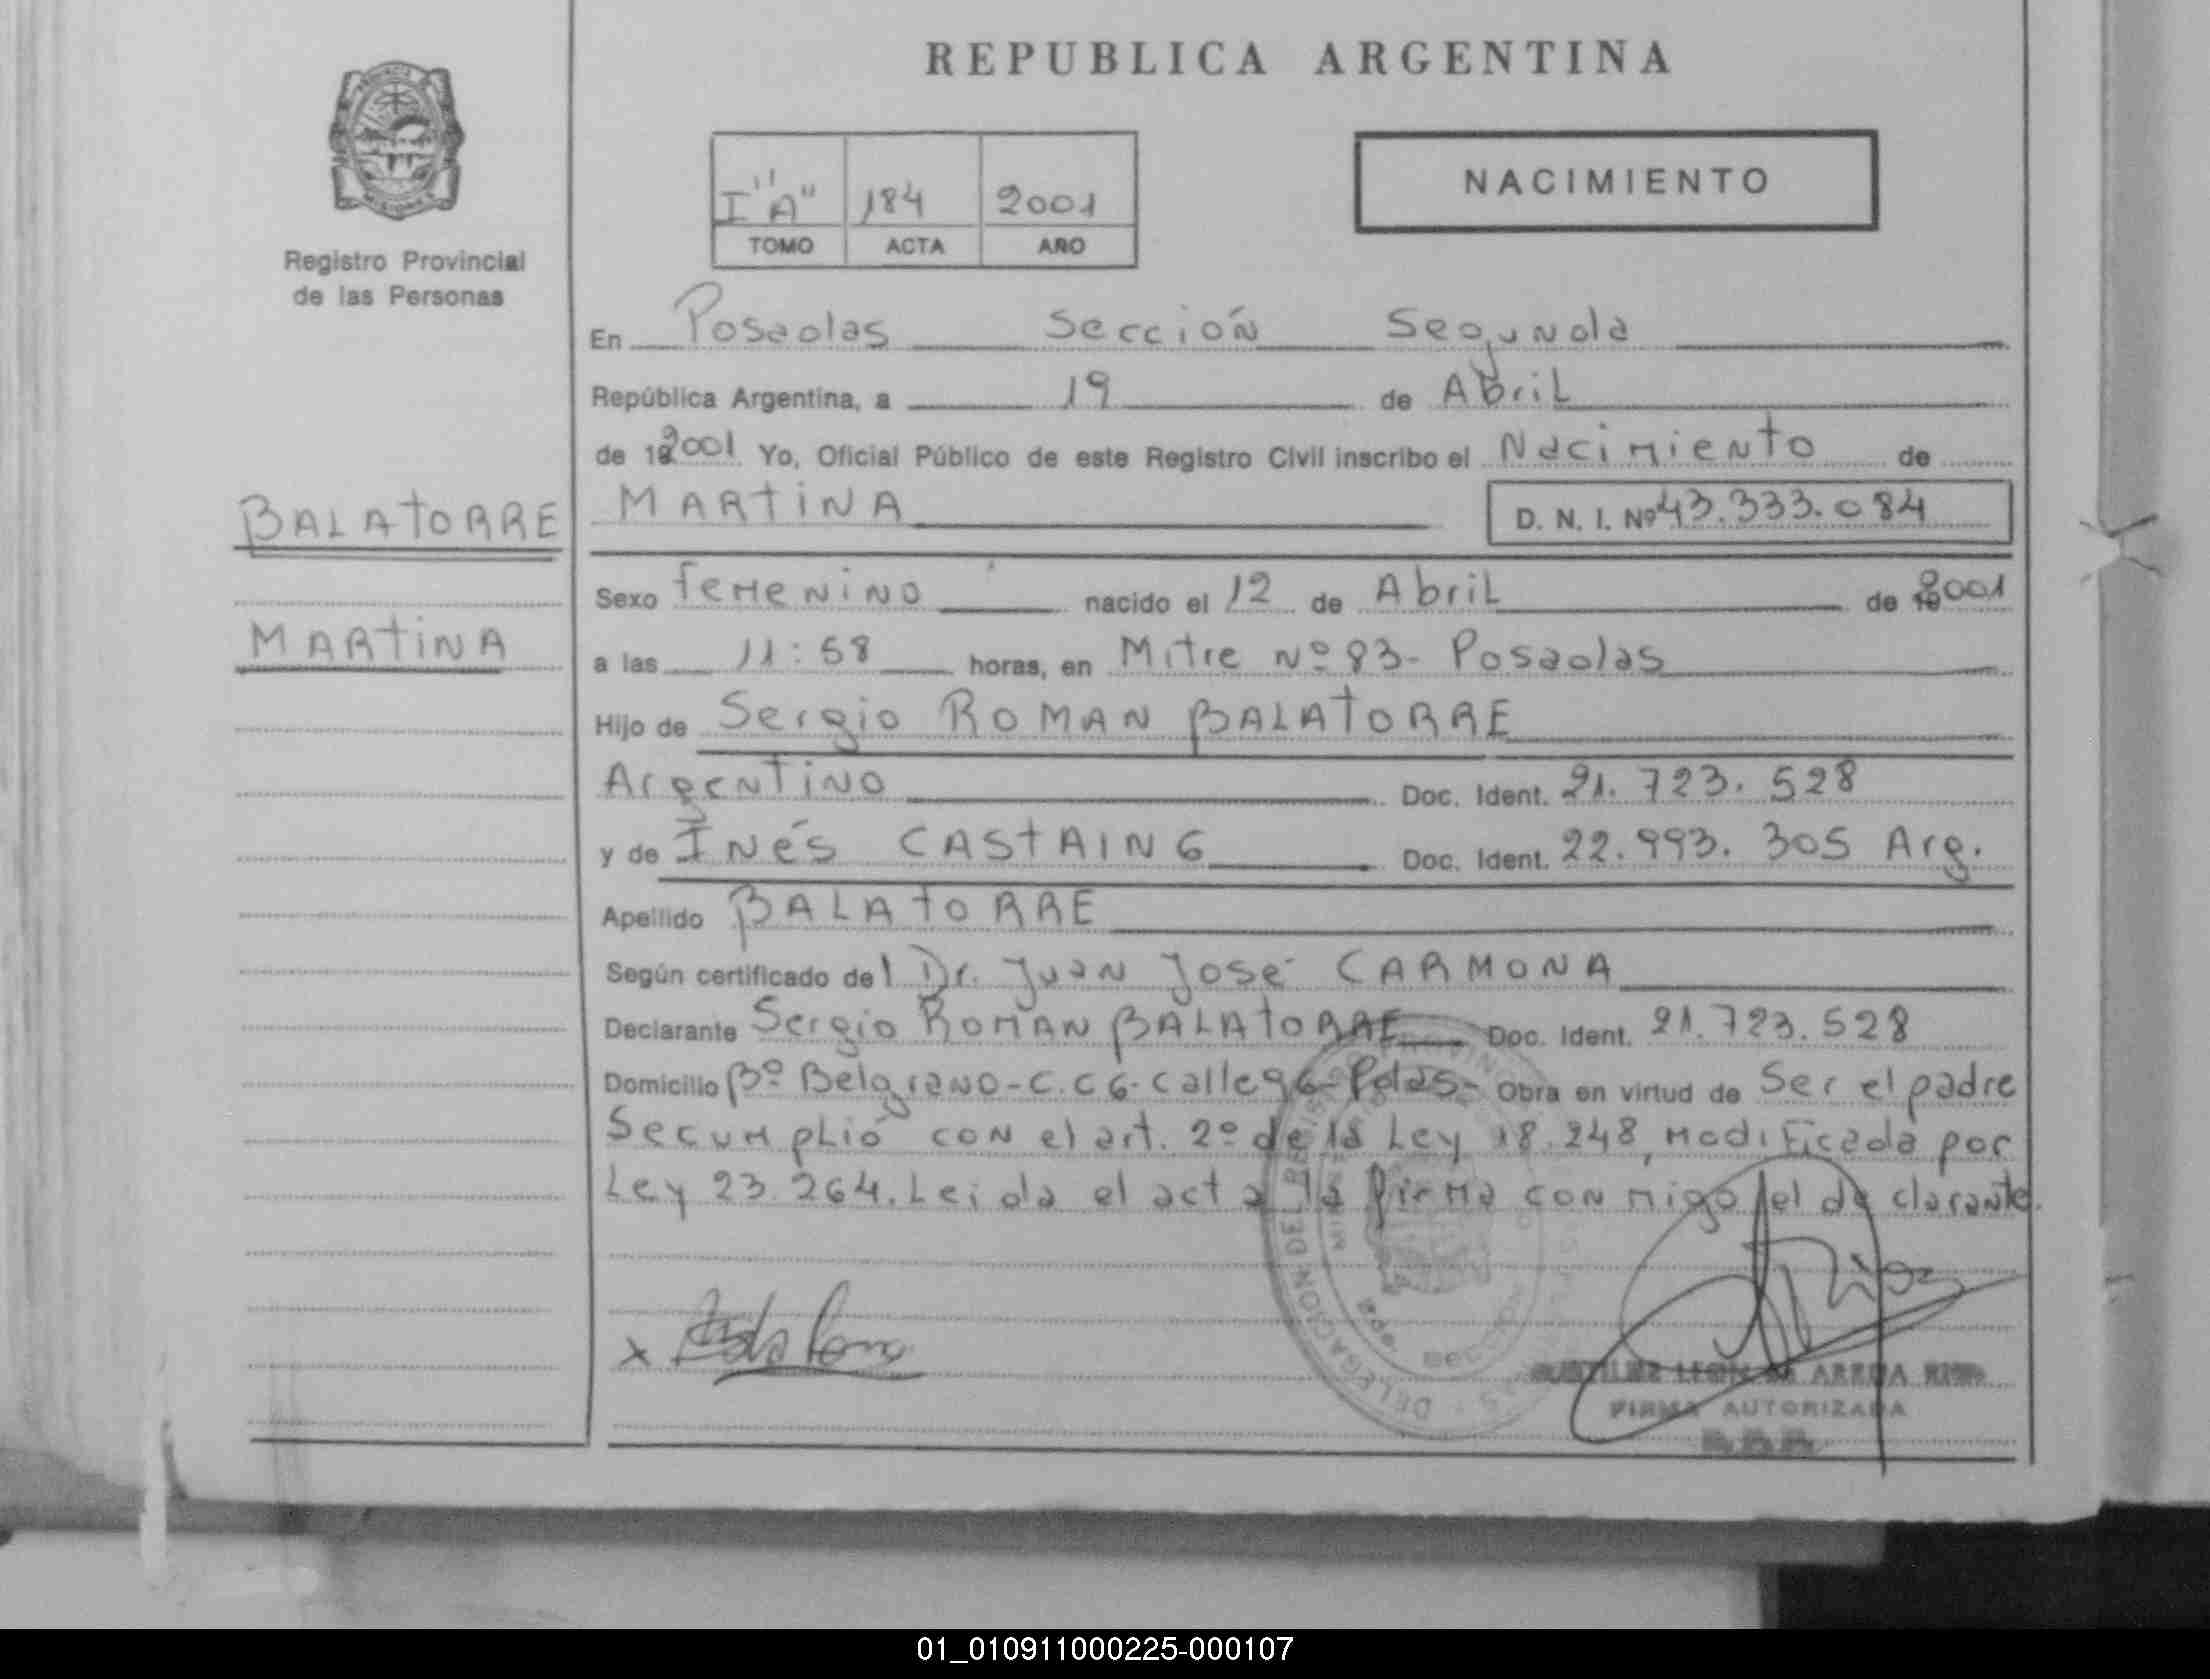 REPUBLICA ARGENTINA
NACIMIENTO
I "A" 184 2001
TOMO ACTA AÑO
Registro Provincial
de las Personas
En Posadas Sección Segunda
República Argentina, a 19 de Abril
de 2001 Yo, Oficial Público de este Registro Civil inscribo el Nacimiento de
BALATORRE
MARTINA D. N. I. Nº 43.333.084
Sexo Femenino nacido el 12 de Abril de 2001
MARTINA
a las 11:58 horas, en Mitre Nº 83- Posadas
Hijo de Sergio ROMAN BALATORRE
Argentino Doc. Ident. 21.723.528
y de Inés CASTAING Doc. Ident. 22.993.305 Arg.
Apellido BALATORRE
Según certificado del Dr. Juan José CARMONA
Declarante Sergio ROMAN BALATORRE Doc. Ident. 21.723.528
Domicilio Bº Belgrano-C.C6-calle96-Pdas- Obra en virtud de Ser el padre
Se cumplió con el art. 2º de la Ley 18.248, modificada por
Ley 23.264. Leida el acta la firma conmigo el declarante.
DELEGACION DEL
FIRMA AUTORIZADA
01_010911000225-000107